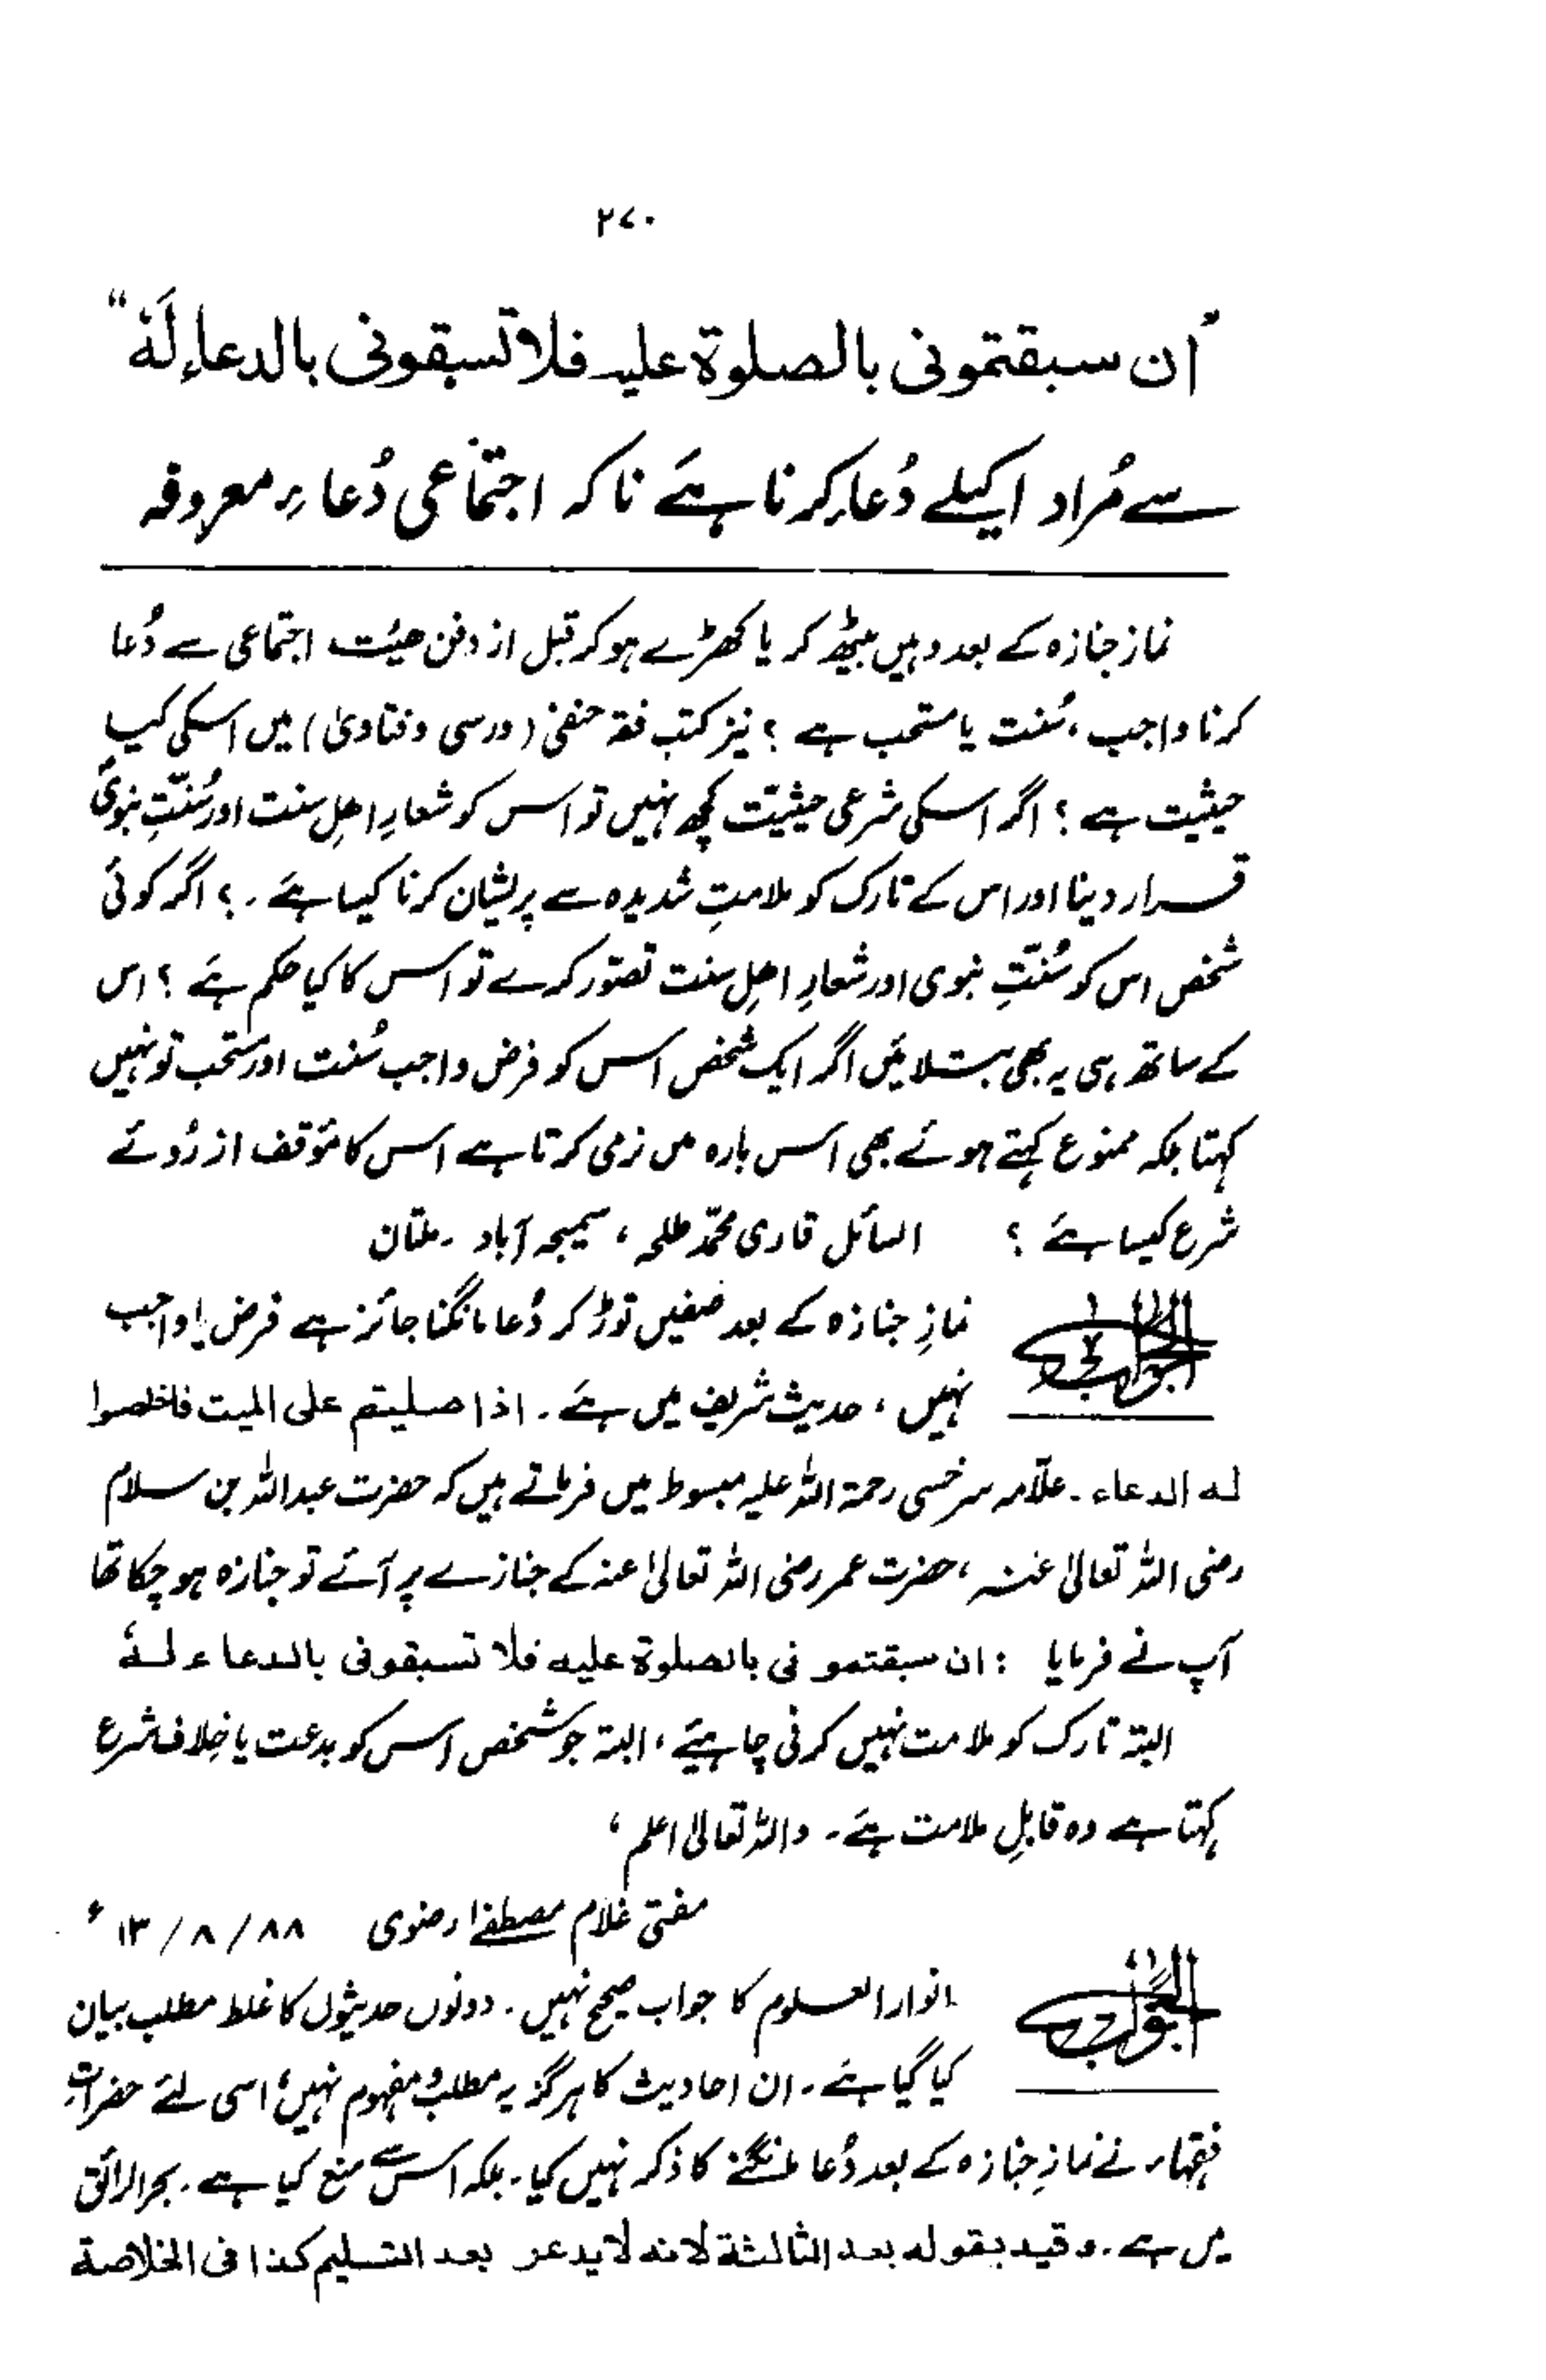 ۲۷۰
"ان سبقتمونی بالصلوۃ علیہ فلا تسبقونی بالدعاء لَہٗ"
سے مُراد اکیلے دُعاء کرنا ہے ناکہ اجتماعی دُعاءِ معروفہ
نماز جنازہ کے بعد وہیں بیٹھ کر یا کھڑے ہو کر قبل از دفن ھیئت اجتماعی سے دُعا
کرنا واجب ، سُنت یا مستحب ہے ؟ نیز کتب فقہ حنفی (درسی و فتاویٰ) میں اسکی کیا
حیثیت ہے ؟ اگر اسکی شرعی حیثیت کچھ نہیں تو اس کو شعارِ اھلِ سنت اور سُنّتِ نبویؐ
قرار دینا اور اس کے تارک کو ملامتِ شدیدہ سے پریشان کرنا کیسا ہے ۔؟ اگر کوئی
شخص اس کو سُنّتِ نبوی اور شعارِ اھلِ سنت تصوّر کرے تو اس کا کیا حکم ہے ؟ اس
کے ساتھ ہی یہ بھی بتلائیں اگر ایک شخص اس کو فرض واجب سُنت اور مستحب تو نہیں
کہتا بلکہ ممنوع کہتے ہوئے بھی اس بارہ میں نرمی کرتا ہے اس کا مَوقف از رُوئے
شرع کیسا ہے ؟ السائل قاری محمّد طلحہ ، سمیجہ آباد ۔ ملتان
الجواب نمازِ جنازہ کے بعد صفیں توڑ کر دُعا مانگنا جائز ہے فرض یا واجب
نہیں ، حدیث شریف میں ہے ۔ اذا صلیتم علی المیت فاخلصوا
لہ الدعاء ۔ علّامہ سرخسی رحمۃ اللہ علیہ مبسوط میں فرماتے ہیں کہ حضرت عبداللہ بن سلام
رضی اللہ تعالیٰ عنہ ، حضرت عمر رضی اللہ تعالیٰ عنہ کے جنازے پر آئے تو جنازہ ہو چکا تھا
آپ نے فرمایا : ان سبقتمونی بالصلوۃ علیہ فلا تسبقونی بالدعاء لہٗ
البتہ تارک کو ملامت نہیں کرنی چاہیئے ، البتہ جو شخص اس کو بدعت یا خلافِ شرع
کہتا ہے وہ قابلِ ملامت ہے ۔ واللہ تعالیٰ اعلم ،
مفتی غلام مصطفےٰ رضوی ۱۳/۸/۸۸ء
الجواب انوار العلوم کا جواب صحیح نہیں ۔ دونوں حدیثوں کا غلط مطلب بیان
کیا گیا ہے ۔ ان احادیث کا ہرگز یہ مطلب و مفہوم نہیں ، اسی لئے حضراتِ
فقہاء نے نمازِ جنازہ کے بعد دُعا مانگنے کا ذکر نہیں کیا ۔ بلکہ اس سے منع کیا ہے ۔ بحر الرائق
میں ہے ۔ وقید بقولہ بعد الثالثۃ لانہ لا یدعو بعد التسلیم کذا فی الخلاصۃ